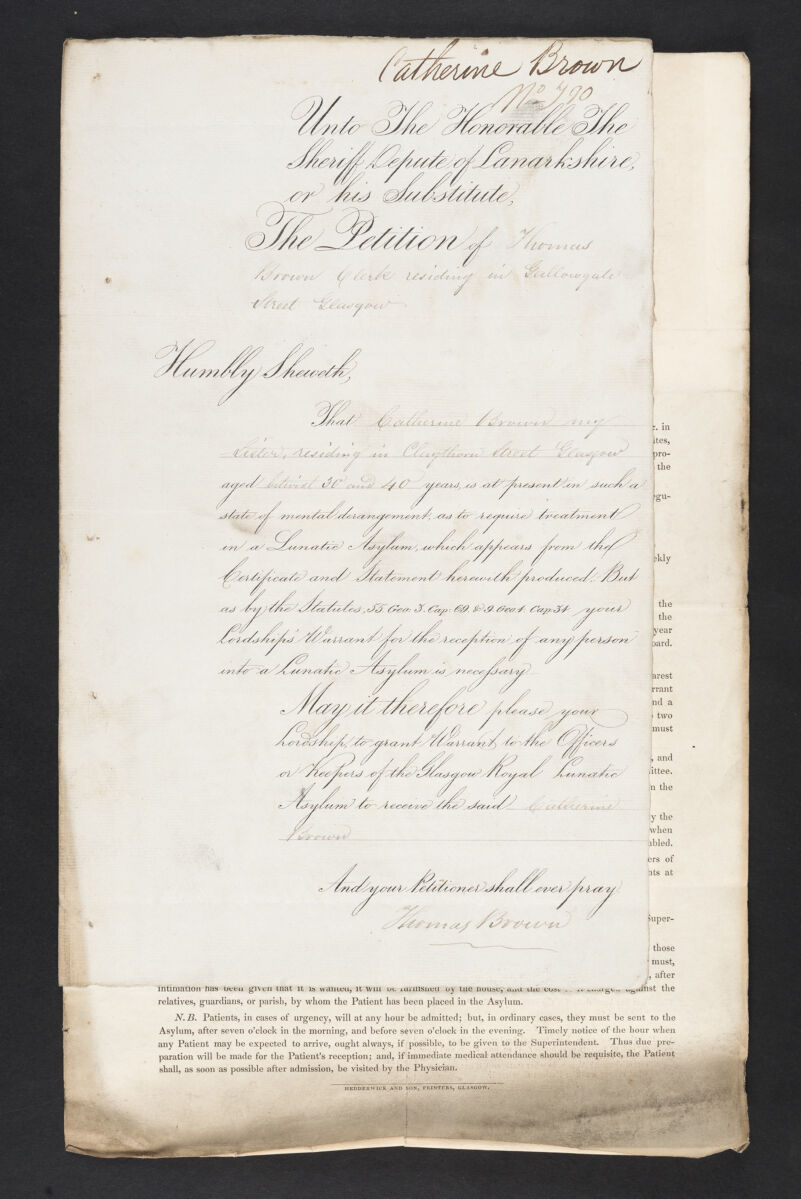 Catherine Brown
No 790
Unto The Honorable The
Sheriff Depute of Lanarkshire,
or his Substitute,
The Petition of Thomas
Brown Clerk residing in Gallowgate
Street Glasgow
Humbly Sheweth,
That Catherine Brown my
Sister, residing in Claythorn Street Glasgow
aged betwixt 30 and 40 years, is at present in such a
state of mental derangement, as to require treatment
in a Lunatic Asylum, which appears from the
Certificate and Statement herewith produced: But
as by the Statutes, 55 Geo: 3. Cap: 69. & 9 Geo 4. Cap: 34 your
Lordship's Warrant for the reception of any person
into a Lunatic Asylum is necessary
May it therefore please your
Lordship, to grant Warrant, to the Officers
or Keepers of the Glasgow Royal Lunatic
Asylum to receive the said Catherine
Brown
And your Petitioner shall ever pray
Thomas Brown
c. in
pro-
the
egu-
ekly
the
the
year
oard.
arest
rrant
nd a
two
must
, and
ittee.
n the
y the
when
abled.
ers of
nts at
Super-
those
must,
, after
intimation has been given that it is wanted, it will be furnished by the house, and the cost charged against the
relatives, guardians, or parish, by whom the Patient has been placed in the Asylum.
N.B. Patients, in cases of urgency, will at any hour be admitted; but, in ordinary cases, they must be sent to the
Asylum, after seven o'clock in the morning, and before seven o'clock in the evening. Timely notice of the hour when
any Patient may be expected to arrive, ought always, if possible, to be given to the Superintendent. Thus due pre-
paration will be made for the Patient's reception; and, if immediate medical attendance should be requisite, the Patient
shall, as soon as possible after admission, be visited by the Physician.
HEDDERWICK AND SON, PRINTERS, GLASGOW.